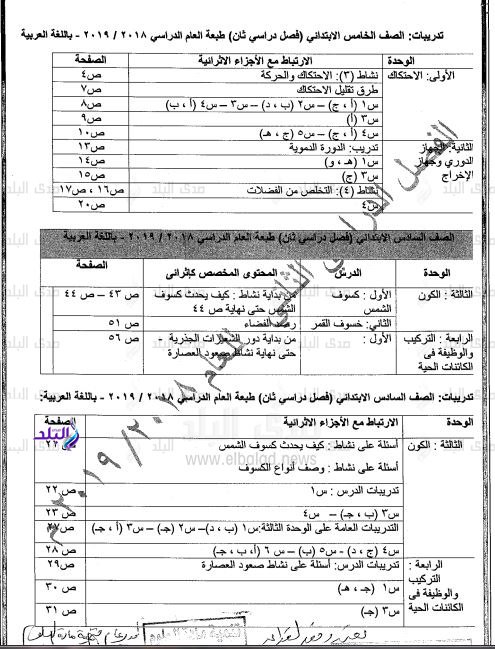 تدريبات: الصف الخامس الابتدائي (فصل دراسي ثان) طبعة العام الدراسي ٢٠١٨ / ٢٠١٩ - باللغة العربية
الوحدة الارتباط مع الأجزاء الاثرائية الصفحة
الأولى: الاحتكاك نشاط (٣): الاحتكاك والحركة ص٤
طرق تقليل الاحتكاك ص٧
س١ (أ ، ج) – س٢ (ب ، د) – س٣ – س٤ (أ ، ب) ص٨
س٣ (أ) ص٩
س٤ (أ ، ج) – س٥ (ج ، هـ) ص١٠
الثانية: الجهاز تدريب: الدورة الدموية ص١٣
الدوري وجهاز س١ (هـ ، و) ص١٤
الإخراج س٣ (ج) ص١٥
نشاط (٤): التخلص من الفضلات ص١٦ ، ص١٧
س٤ ص٢٠
الصف السادس الابتدائي (فصل دراسي ثان) طبعة العام الدراسي ٢٠١٨ / ٢٠١٩ - باللغة العربية
الوحدة الدرس المحتوى المخصص كإثرائى الصفحة
الثالثة : الكون الأول : كسوف من بداية نشاط : كيف يحدث كسوف ص ٤٣ – ص ٤٤
الشمس الشمس حتى نهاية ص ٤٤
الثاني: خسوف القمر رصد الفضاء ص ٥١
الرابعة : التركيب الأول : من بداية دور الشعيرات الجذرية - ص ٥٦
والوظيفة فى حتى نهاية نشاط صعود العصارة
الكائنات الحية
تدريبات: الصف السادس الابتدائي (فصل دراسي ثان) طبعة العام الدراسي ٢٠١٨ / ٢٠١٩ - باللغة العربية:
الوحدة الارتباط مع الأجزاء الاثرائية الصفحة
الثالثة : الكون أسئلة على نشاط : كيف يحدث كسوف الشمس ص ٢٢
أسئلة على نشاط : وصف أنواع الكسوف
تدريبات الدرس : س١ ص ٢٢
س٣ (ب ، جـ) – س٤ ص ٢٣
التدريبات العامة على الوحدة الثالثة:س١ (ب ، د)– س٢ (جـ)– س٣ (أ ، جـ) ص٢٧
س٤ (ج ، د)- س٥ (ب) – س٦ (أ ، ب ، جـ) ص ٢٨
الرابعة : تدريبات الدرس: أسئلة على نشاط صعود العصارة ص٢٩
التركيب
والوظيفة فى س١ (جـ ، هـ) ص ٣٠
الكائنات الحية س٣ (جـ) ص ٣١
الفصل الدراسى الثانى للعام ٢٠١٨ / ٢٠١٩
صدى البلد
www.elbalad.news